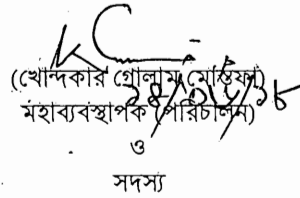 (খোন্দকার গোলাম মোস্তফা)
মহাব্যবস্থাপক (পরিচালন)
ও
সদস্য